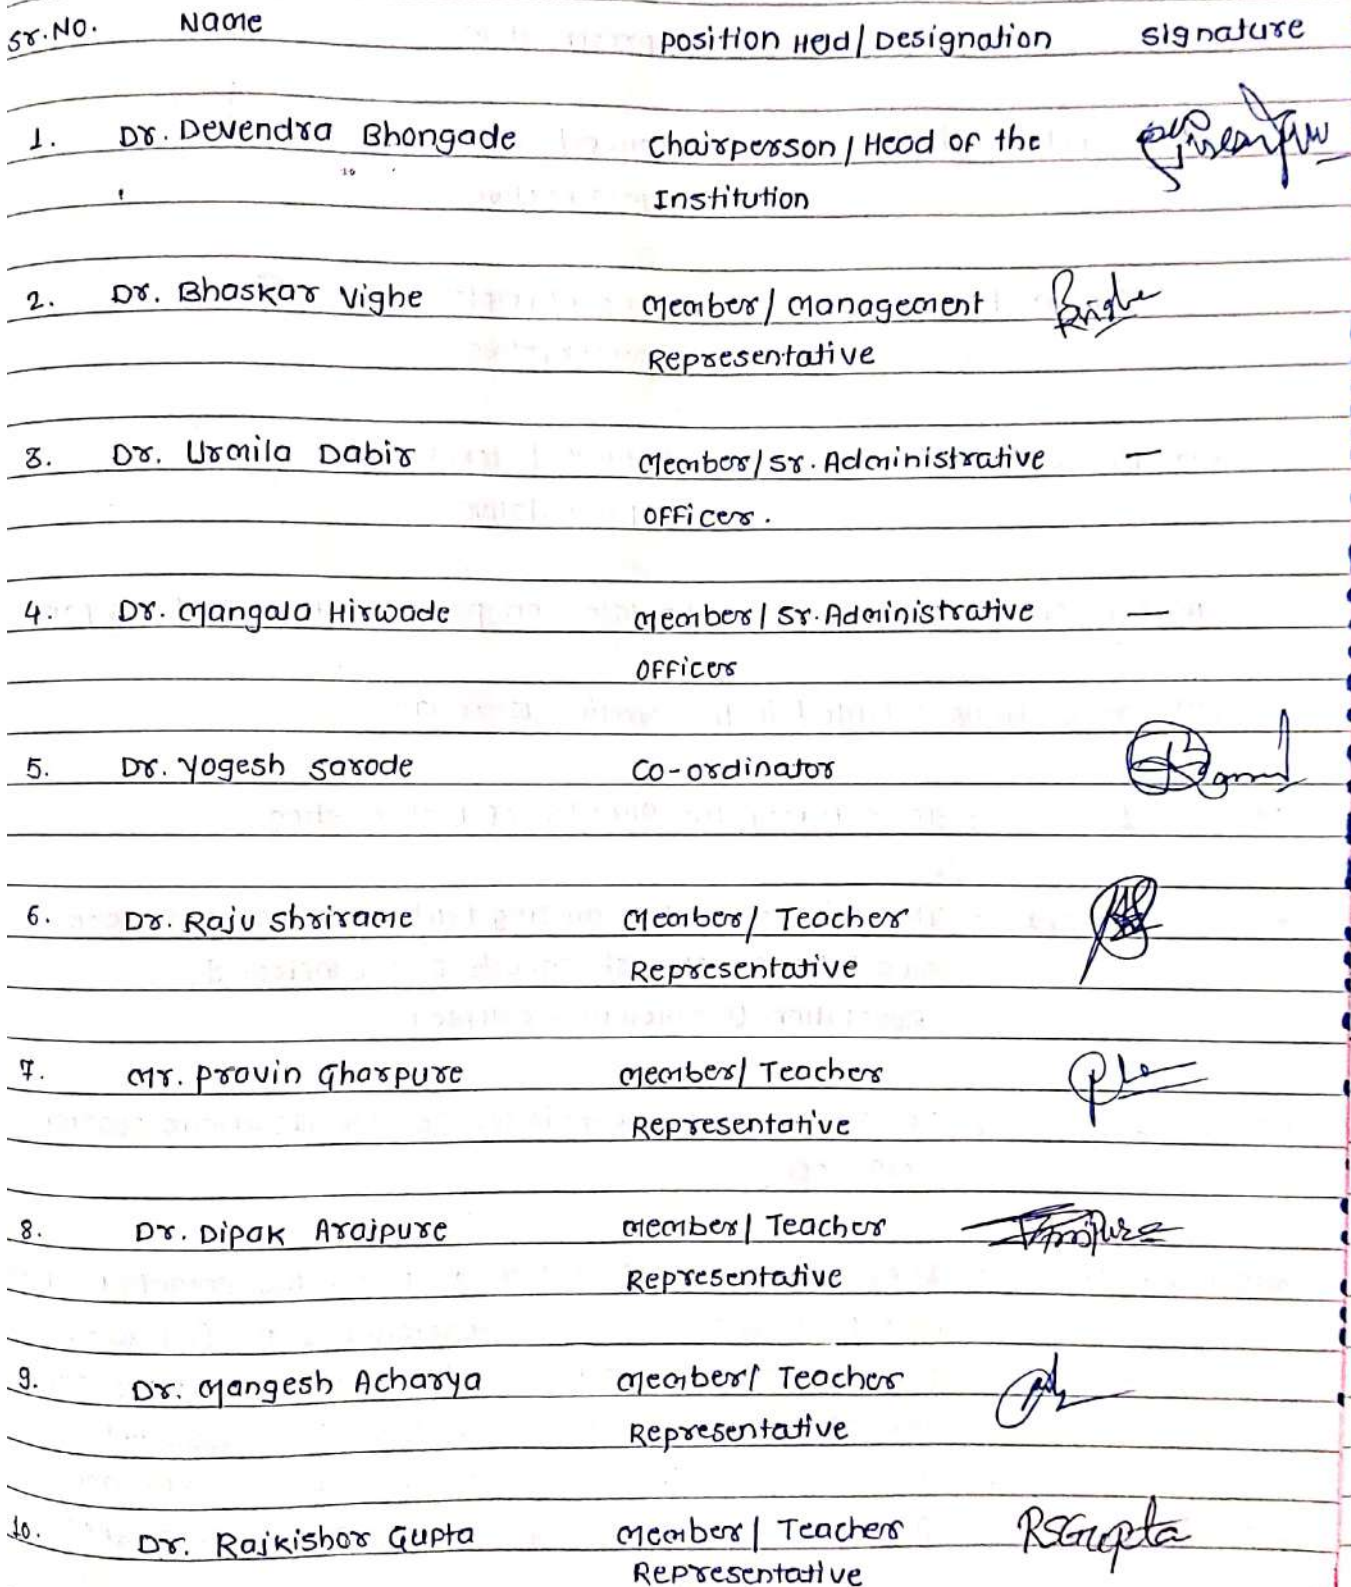 Sr.No. Name Position Held/Designation Signature
1. Dr. Devendra Bhongade Chairperson/Head of the
Institution
2. Dr. Bhaskar Vighe Member/Management
Representative
3. Dr. Urmila Dabir Member/Sr.Administrative —
Officer.
4. Dr. Mangala Hirwade Member/Sr.Administrative —
Officer
5. Dr. Yogesh Sarode Co-ordinator
6. Dr. Raju Shrirame Member/Teacher
Representative
7. Mr. Pravin Gharpure Member/Teacher
Representative
8. Dr. Dipak Arajpure Member/Teacher
Representative
9. Dr. Mangesh Acharya Member/Teacher
Representative
10. Dr. Rajkishor Gupta Member/Teacher RSGupta
Representative